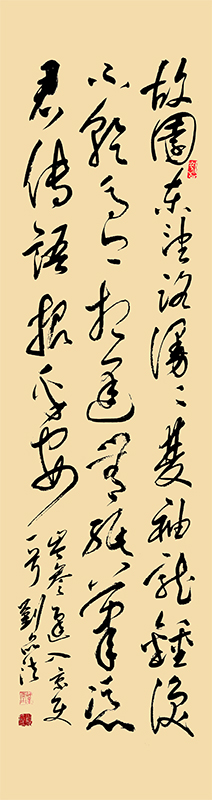 故園東望路漫々雙袖龍鍾淚
不乾馬上相逢無紙筆憑
君傳語報平安
岑參逢入京使
一首 劉